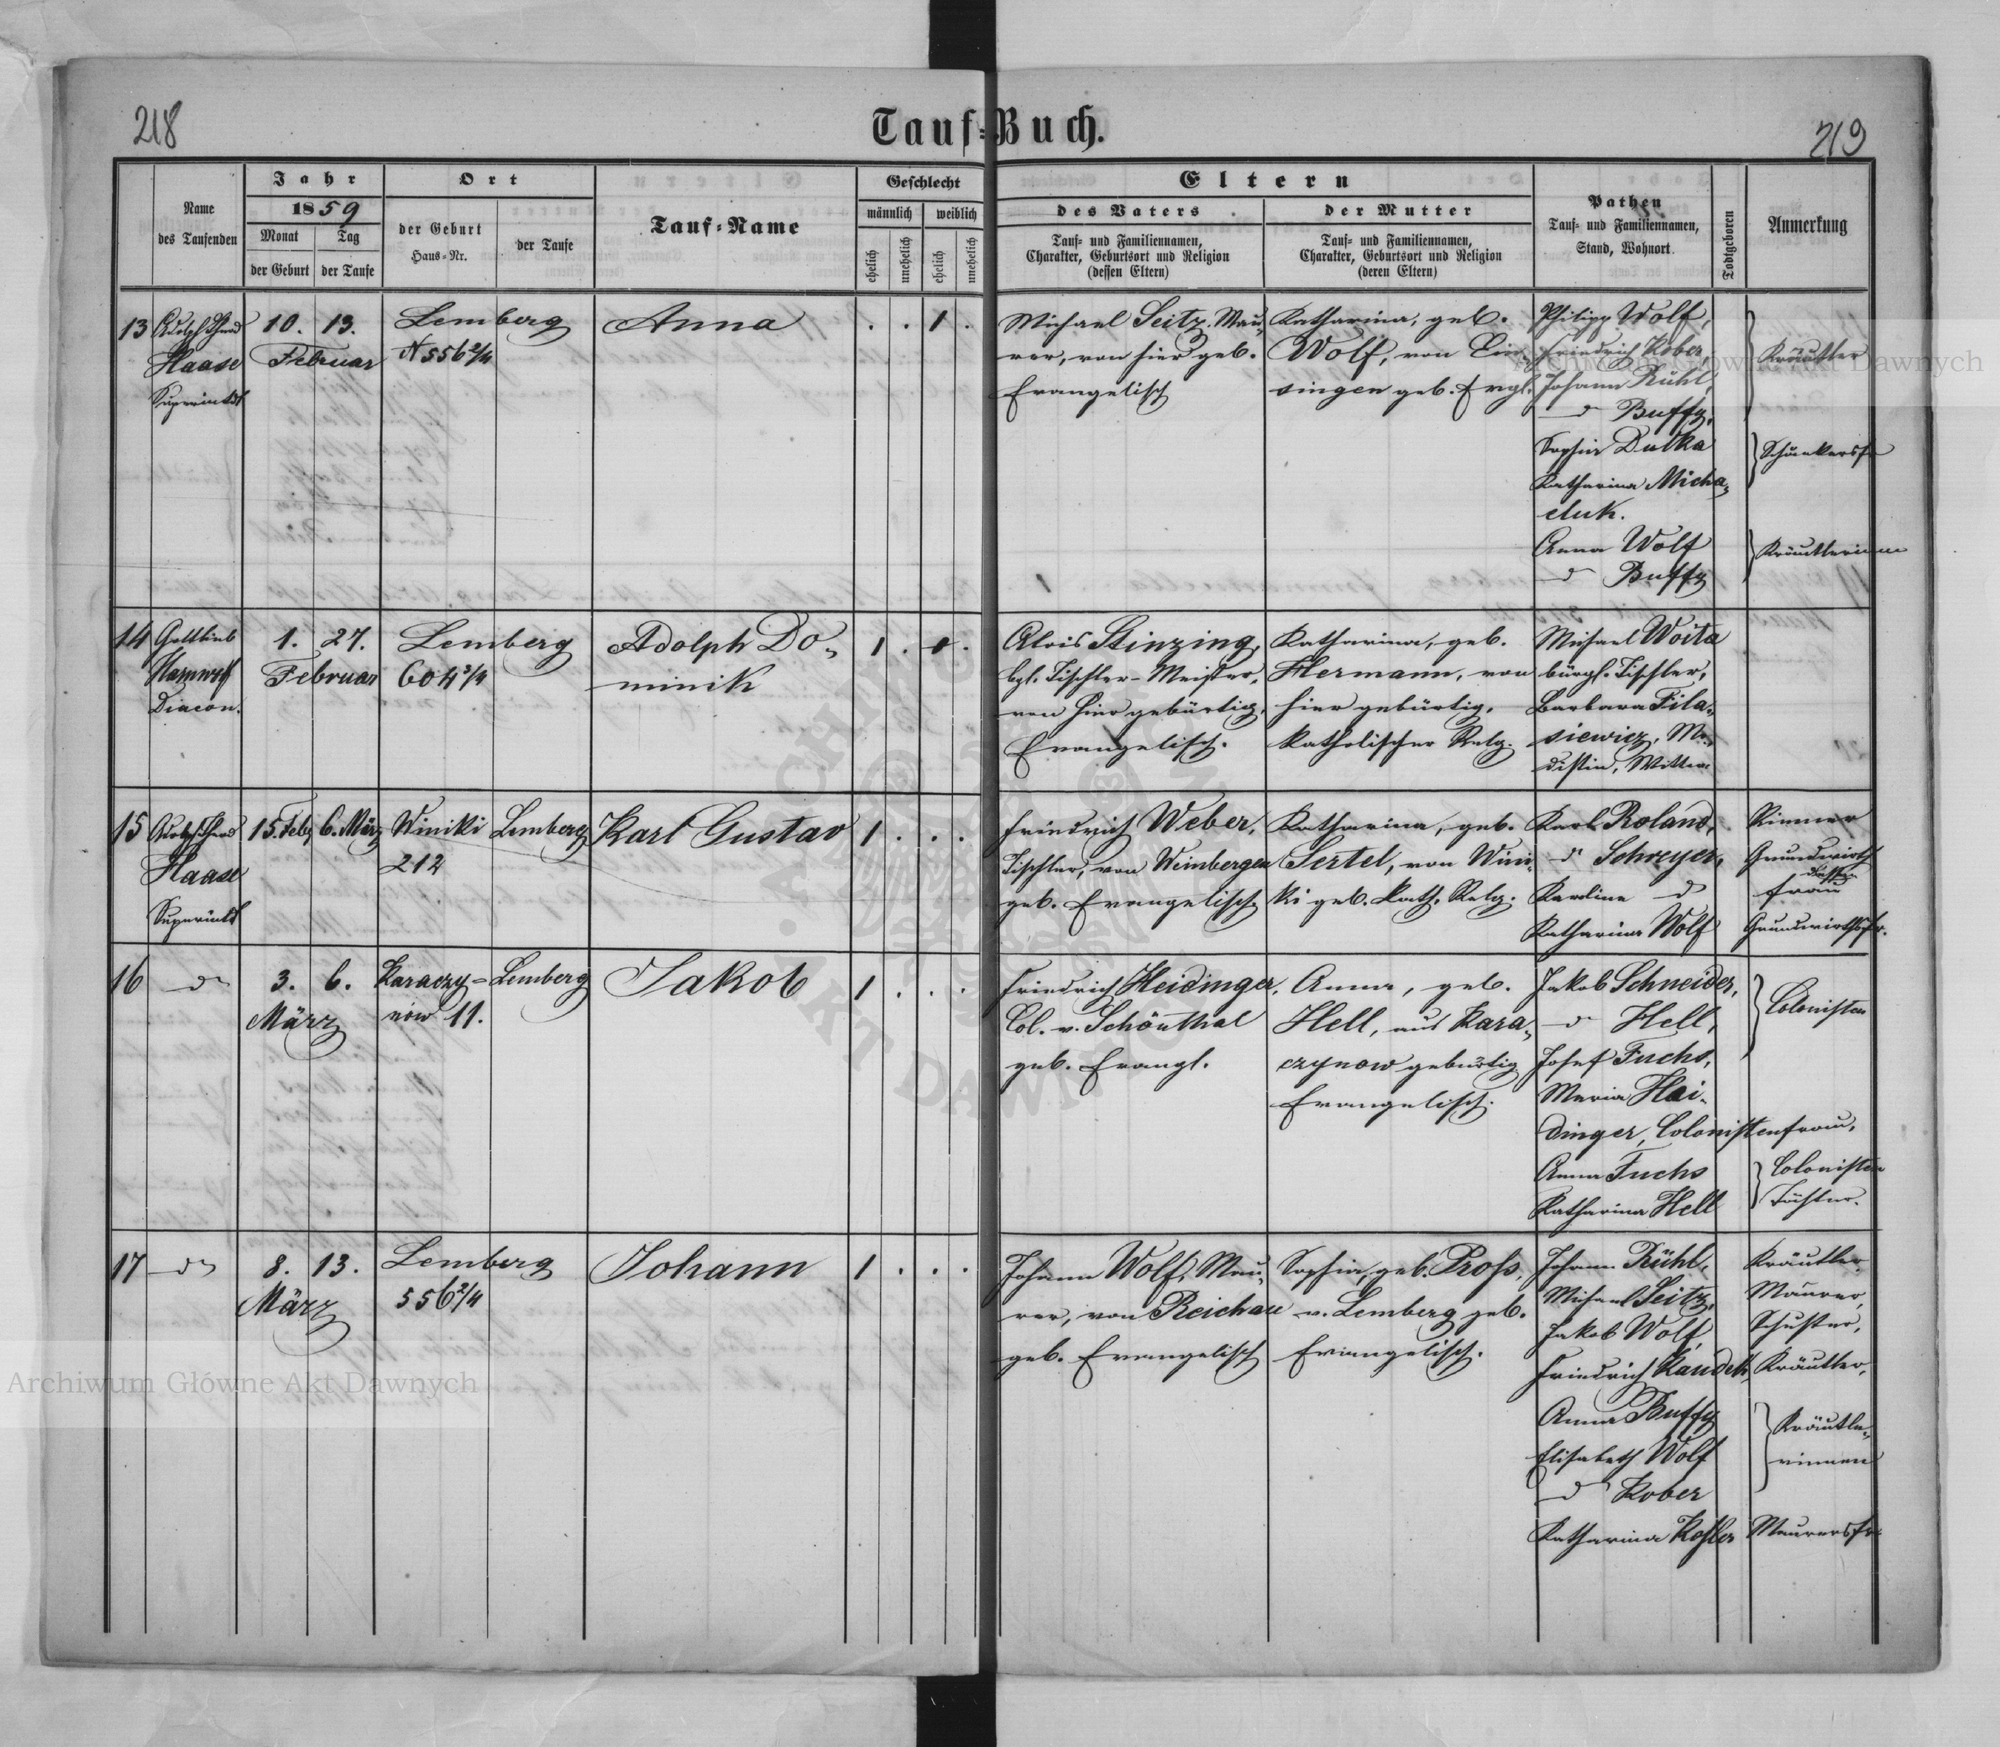 218
Tauf-Buch.
219
Name
des Taufenden
Jahr
1859
Monat
Tag
der Geburt
der Taufe
Ort
der Geburt
Haus-Nr.
der Taufe
Tauf-Name
Geschlecht
männlich
weiblich
ehelich
unehelich
ehelich
unehelich
Eltern
des Vaters
Tauf- und Familiennamen,
Charakter, Geburtsort und Religion
(dessen Eltern)
der Mutter
Tauf- und Familiennamen,
Charakter, Geburtsort und Religion
(deren Eltern)
Pathen
Tauf- und Familiennamen,
Stand, Wohnort.
Todtgeboren
Anmerkung
13
Haase
10. 13.
Februar
Lemberg
N 556 2/4
Anna
. . 1 .
Michael Seitz, Mau-
rer, von hier geb.
Evangelisch
Katharina, geb.
Wolf, von Ein-
singen geb. Evgl.
Philipp Wolf,
Friedrich Kober,
Johann Rühl,
d Buffy,
Sophia Dutka
Katharina Micha-
eluk.
Anna Wolf
d Buffy
Kräutler
Schänkersfr
Kräutlerinnen
14 Gottlieb
Diacon.
1. 27.
Februar
Lemberg
604 3/4
Adolph Do-
minik
1 . .
Alois Stinzing,
bgl. Tischler-Meister,
von hier gebürtig,
Evangelisch.
Katharina, geb.
Hermann, von
hier gebürtig,
katholischer Relg.
Michael Woita
bürgl. Tischler,
Barbara Fila-
siewicz,
Wittwe
15
Haase
15. Feb. 6. März
Winiki
212
Lemberg
Karl Gustav
1 . . .
Friedrich Weber,
Tischler, von Weinbergen
geb. Evangelisch
Katharina, geb.
Sertel, von Wini-
ki geb. kath. Relg.
Karl Roland,
d Schreyer,
Karoline d
Katharina Wolf
Riemer
Grundwirth
dessen
Frau
Grundwirthsfr.
16 d
3. 6.
März
Karaczy-
now 11.
Lemberg
Jakob
1 . . .
Friedrich Heidinger,
Col. v. Schönthal
geb. Evangl.
Anna, geb.
Hell, aus Kara-
czynow gebürtig
Evangelisch.
Jakob Schneider,
d Hell,
Josef Fuchs,
Maria Hai-
dinger, Colonistenfrau,
Anna Fuchs
Katharina Hell
Colonisten
Colonisten
Töchter.
17 d
8. 13.
März
Lemberg
556 2/4
Johann
1 . . .
Johann Wolf, Mau-
rer, von Reichau
geb. Evangelisch
Sophia, geb. Pross,
v. Lemberg geb.
Evangelisch.
Johann Rühl,
Michael Seitz,
Jakob Wolf,
Friedrich Kandel,
Anna Buffy
Elisabeth Wolf
d Kober
Katharina Kessler
Kräutler,
Maurer,
Schuster,
Kräutler,
Kräutle-
rinnen
Maurersfr.
Archiwum Główne Akt Dawnych
Archiwum Główne Akt Dawnych